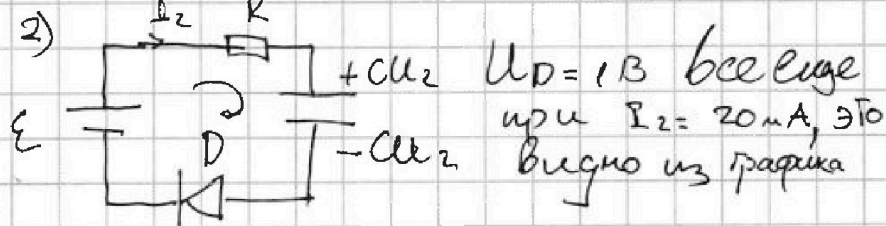 2)
I₂
R
ℰ
D
+CU₂
−CU₂
U_D = 1 В все еще
при I₂ = 20 мА, это
видно из графика